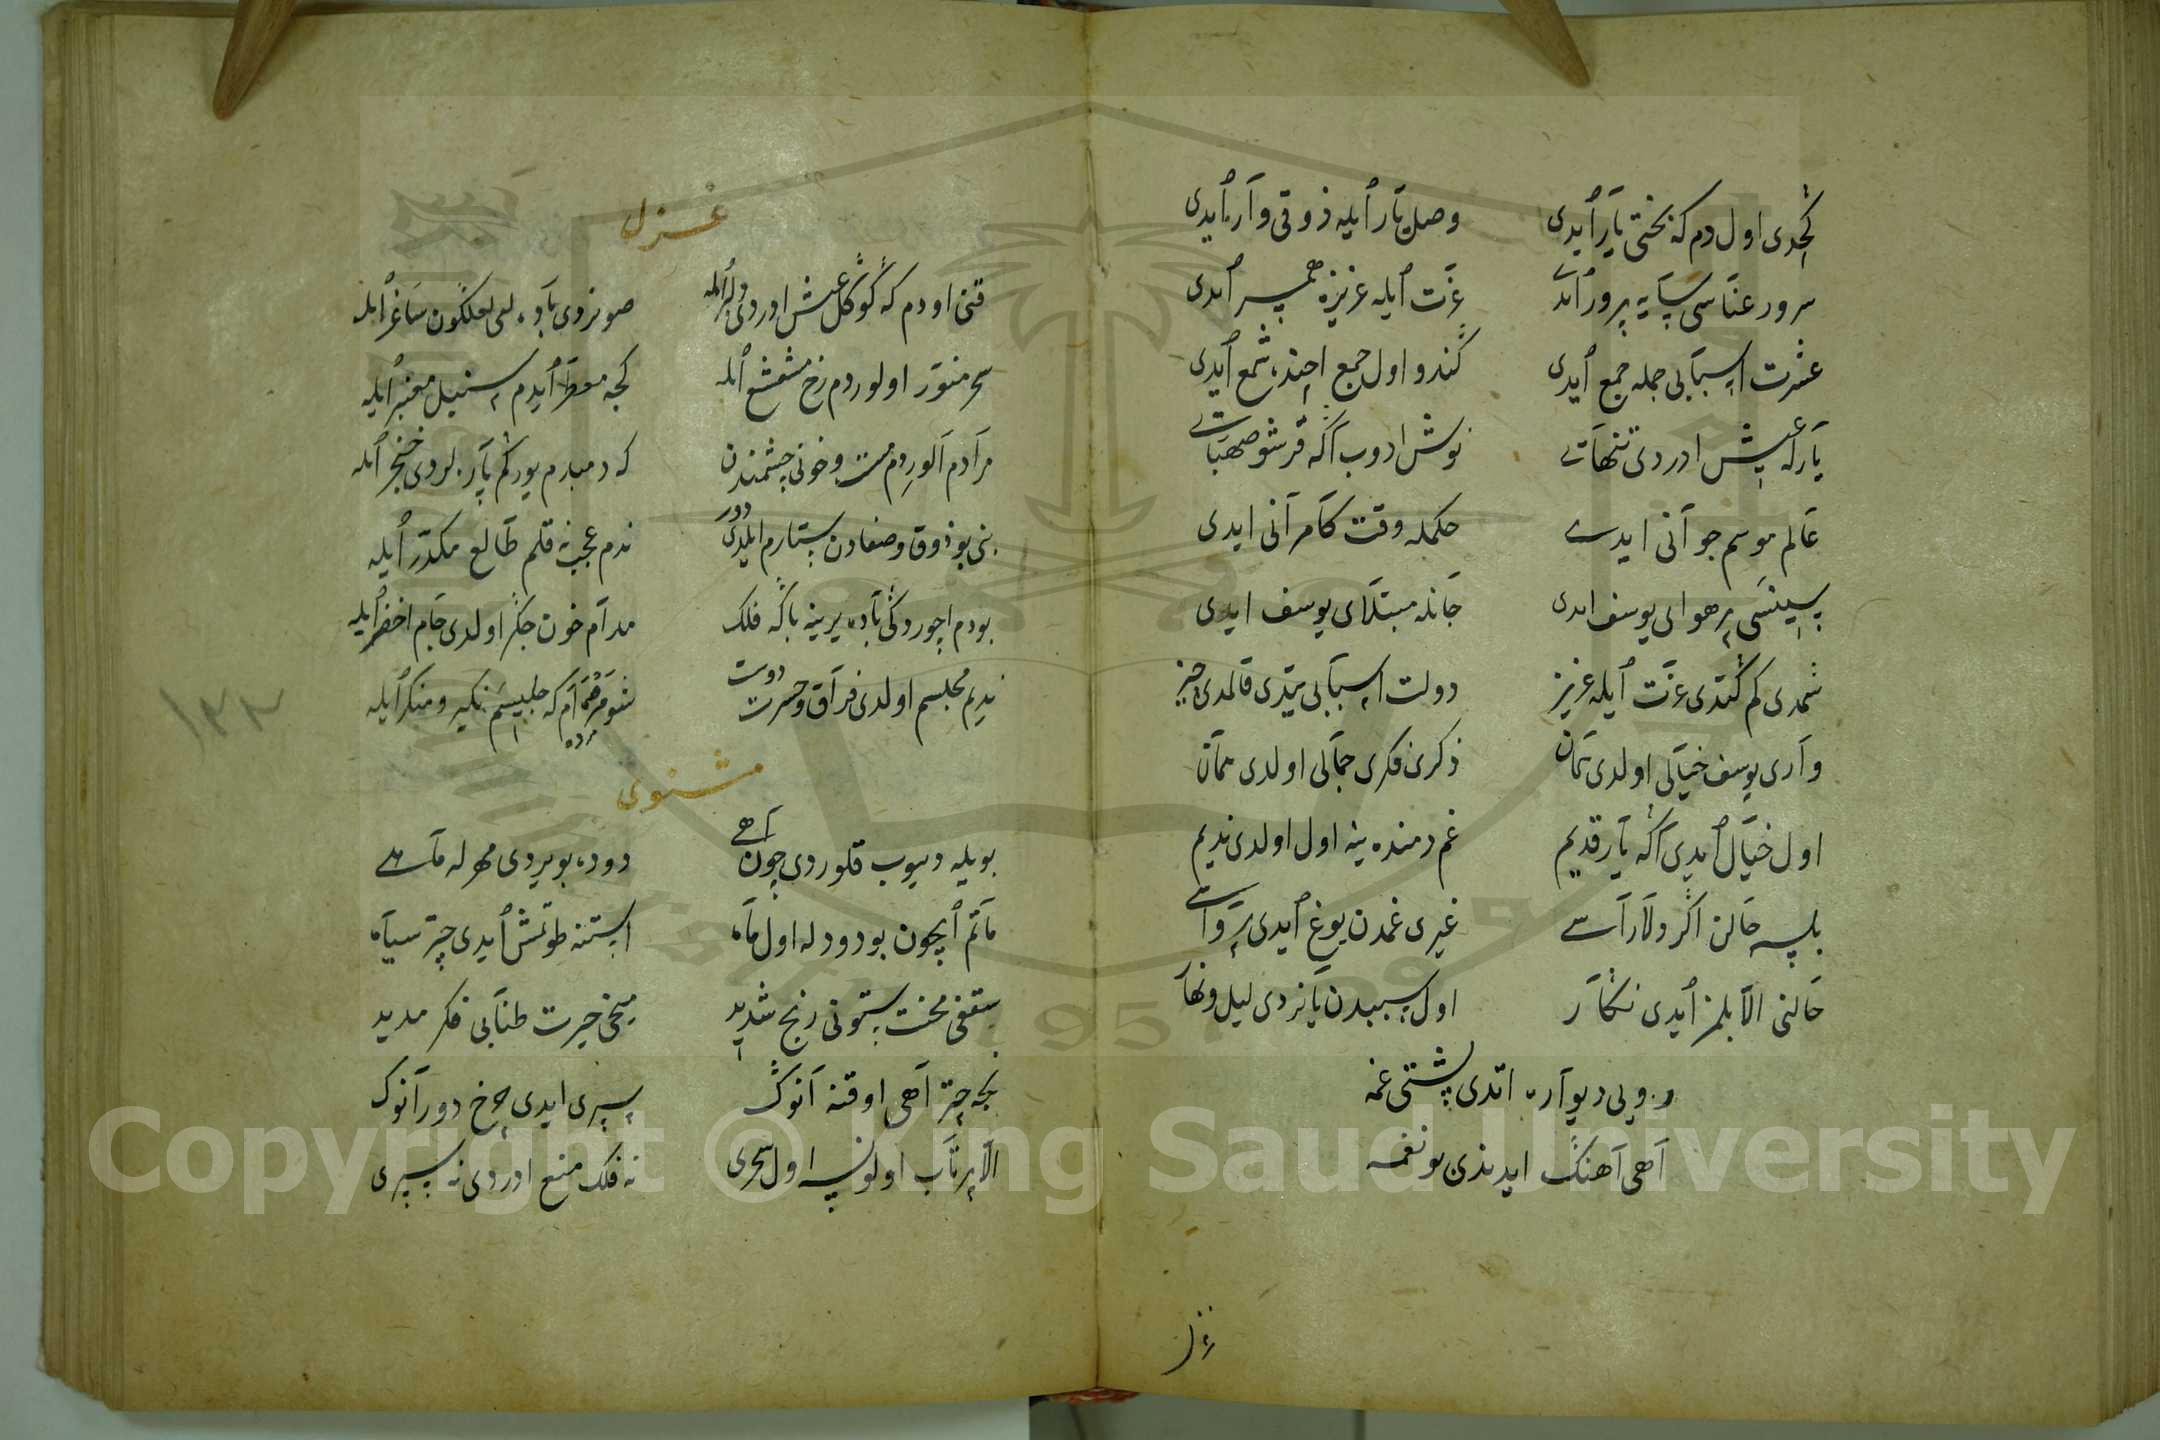 كچدی اول دم كه بختی یار ایدی وصل یار ایله ذوقی وار ایدی
سرور عناسی سایه پرور ایدی عزت ایله عزیزه همسر ایدی
عشرت اسبابی جمله جمع ایدی كندو اول جمع ایچنده شمع ایدی
یارله عیش ادردی تنهایی نوش ادوب اكه قرشو صهبایی
عالم موسم جوانی ایدی حكمله وقت كامرانی ایدی
سینسی پر هوای یوسف ایدی جانله مبتلای یوسف ایدی
شمدی كم كتدی عزت ایله عزیز دولت اسبابی یتدی قالمدی چیز
واری یوسف خیالی اولدی همان ذكری فكری جمالی اولدی همان
اول خیال ایدی اكه یار قدیم غم دمنده ینه اول اولدی ندیم
بلسه حالن اكر دلاراسی غیری غمدن یوغ ایدی پرواسی
حالنی الا بلمز ایدی نكار اول سببدن یانردی لیل و نهار
روبی دیواره اتدی پشتی غمه
آهی آهنك ایدندی بو نغمه
غزل
غزل
قنی او دم كه كوكل عیش ادردی دلبر ایله صونردی باده لبی لعلكون ساغر ایله
سحر منور اولوردم رخ مشعشع ایله كجه معطر ایدم سنبل معنبر ایله
مرادم الوردم مست و خونی چشمندن كه دمبدم یوركم یاره لردی خنجر ایله
بنی بو ذوق و صفادن ستارم ایلدی دور ندم عجب نه قلم طالع مكدر ایله
بو دم ایچوردكی باده یرینه باكه فلك مدام خون جكر اولدی جام اخضر ایله
ندیم مجلسم اولدی فراق و حسرت دوست شو مرده ام كه جلیسم نكیر و منكر ایله
مرده
مثنوی
بویله دیوب قلوردی چون آهی دود بوریردی مهرله ماهی
ماتم ایچون بو دودله اول ماه استنه طوتمش ایدی چتر سیاه
سقفی محنت ستونی رنج شدید میخی حیرت طنابی فكر مدید
نجه چتر آهی اوقنه آنوك سپری ایدی چرخ دور آنوك
الا پرتاب اولونسه اول سحری نه فلك منع ادردی نه سپری
١٣٣
Copyright © King Saud University